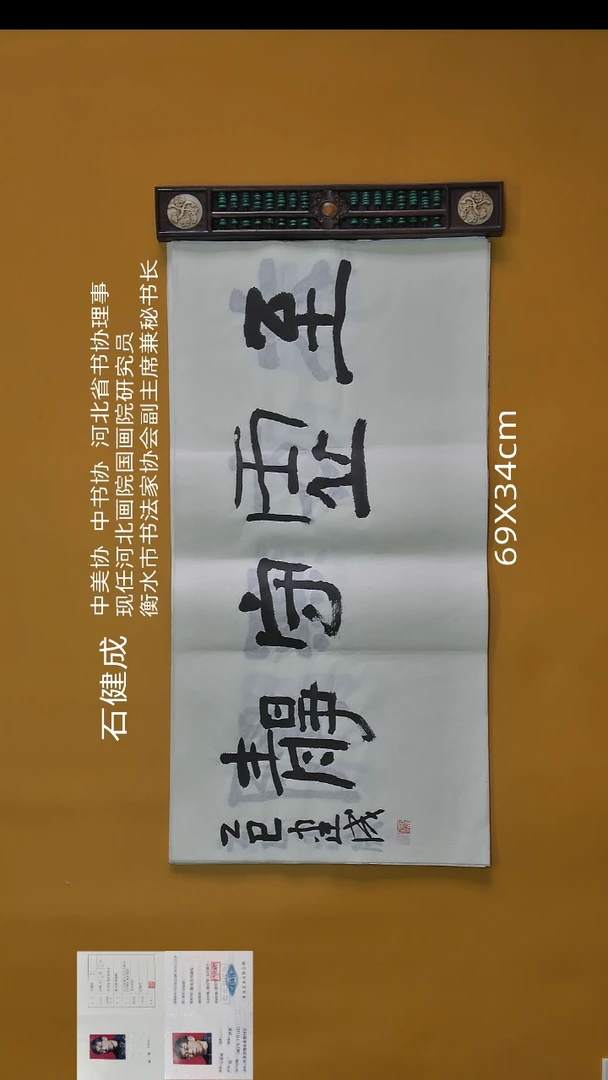 石健成
中美协 中书协 河北省书协理事
现任河北画院国画院研究员
衡水市书法家协会副主席兼秘书长
至虛守靜
乙巳健成
69X34cm